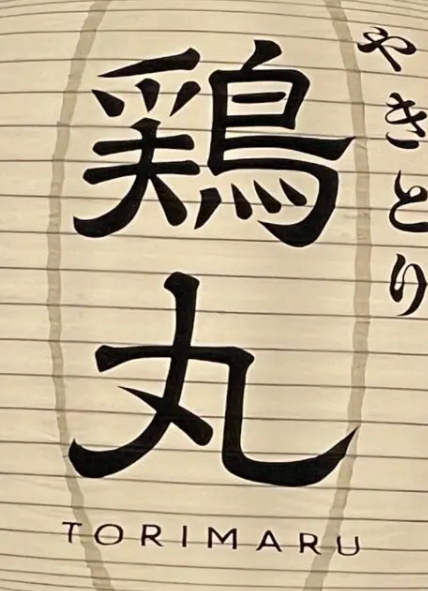 やきとり
鶏丸
TORIMARU